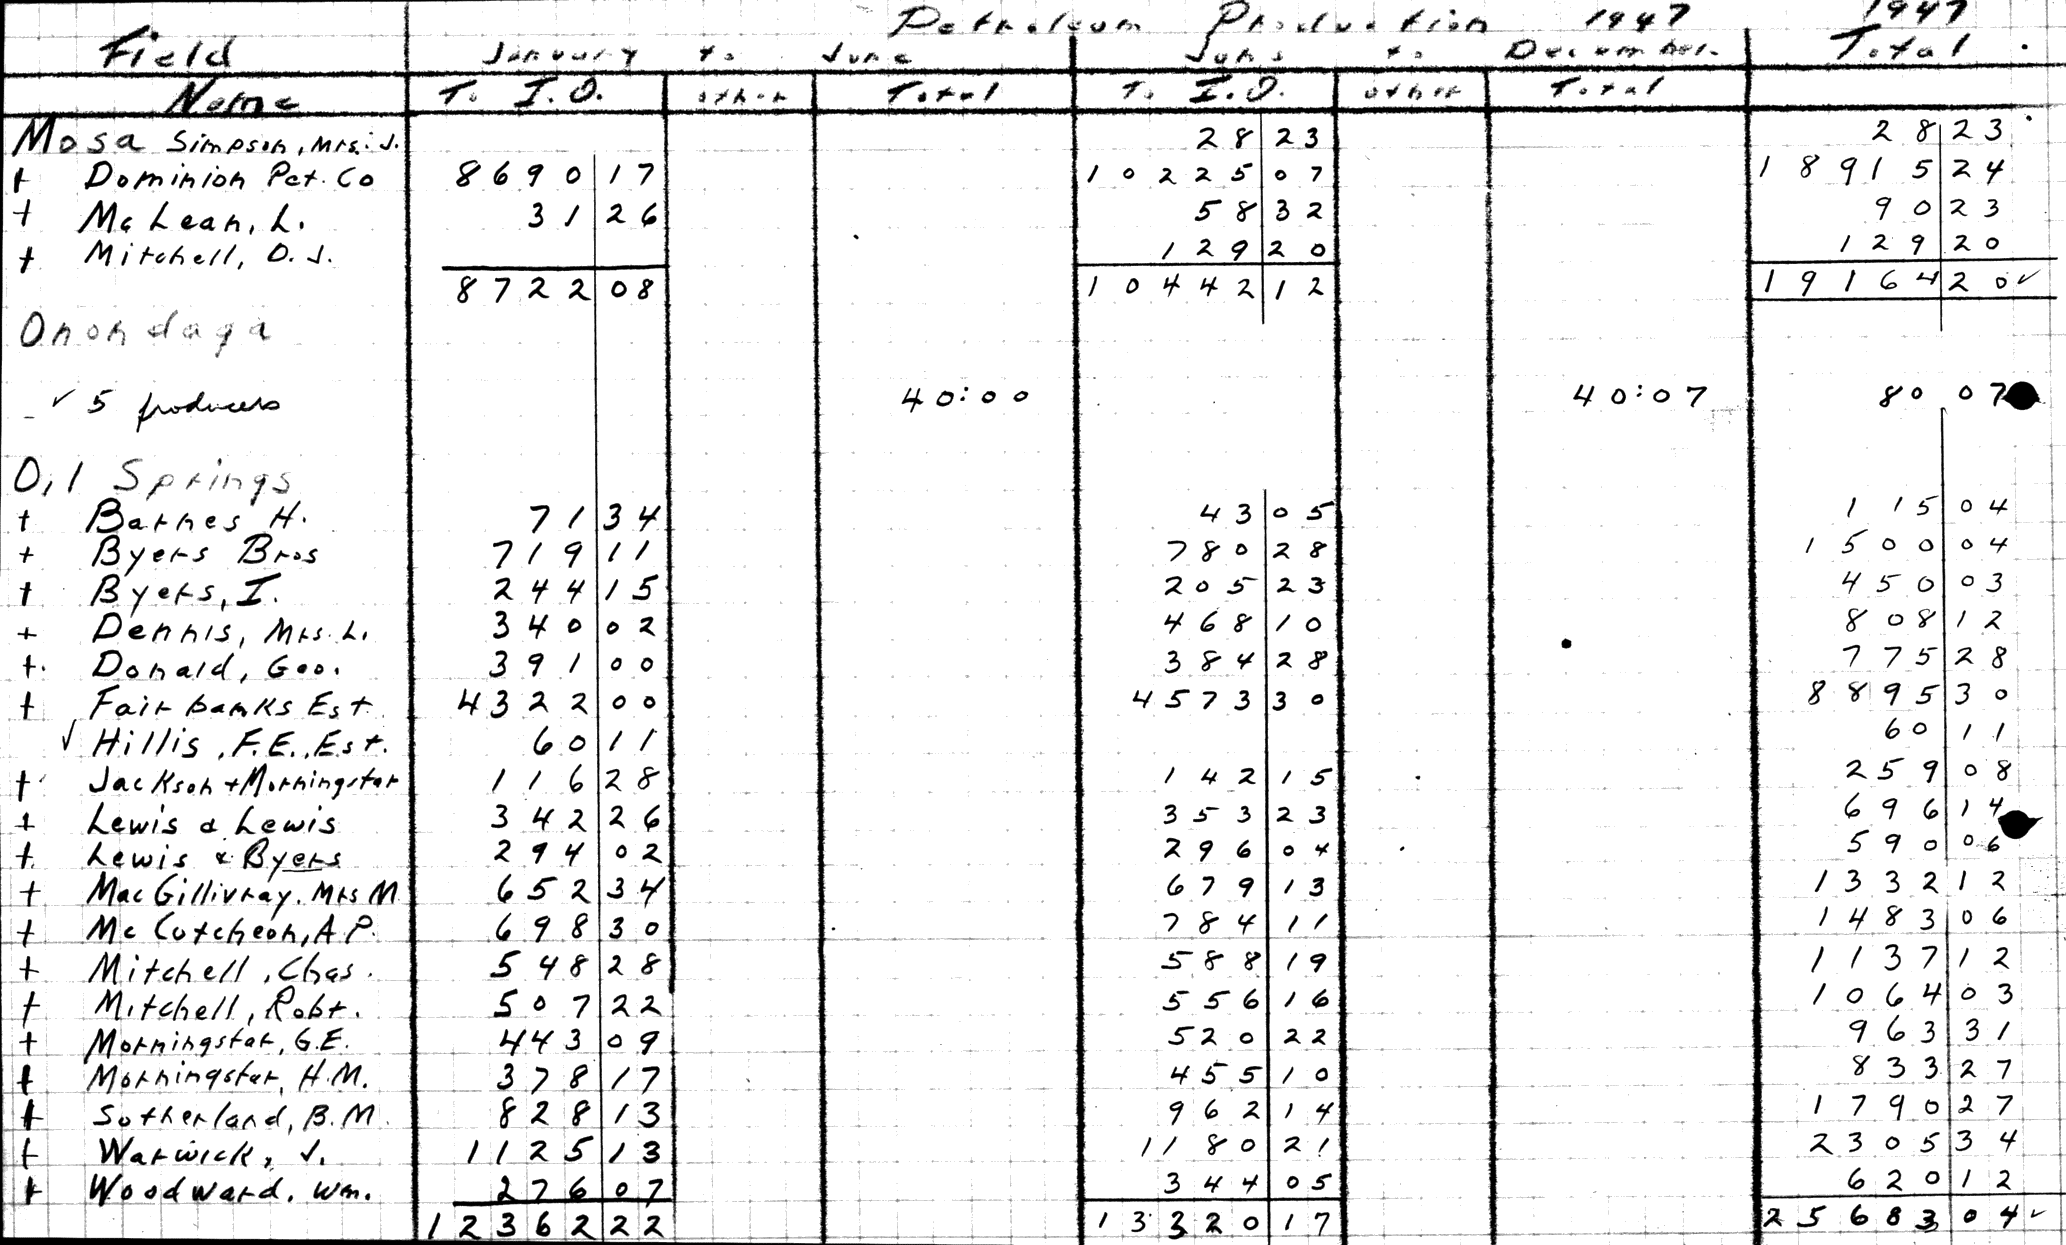 Petroleum Production 1947 1947
Field January to June June to December. Total
Name T. I.O. other Total T. I.O. other Total
Mosa Simpson, Mrs. J. 28 23 28 23
+ Dominion Pet. Co 8690 17 10225 07 18915 24
+ McLean, L. 31 26 58 32 90 23
+ Mitchell, O.J. 129 20 129 20
8722 08 10442 12 19164 20 ✓
Onondaga
- ✓ 5 producers 40:00 40:07 80 07
Oil Springs
+ Barnes H. 71 34 43 05 115 04
+ Byers Bros 719 11 780 28 1500 04
+ Byers, I. 244 15 205 23 450 03
+ Dennis, Mrs. L. 340 02 468 10 808 12
+ Donald, Geo. 391 00 384 28 775 28
+ Fairbanks Est. 4322 00 4573 30 8895 30
✓ Hillis, F.E., Est. 60 11 60 11
+ Jackson + Morningstar 116 28 142 15 259 08
+ Lewis & Lewis 342 26 353 23 696 14
+ Lewis & Byers 294 02 296 04 590 06
+ MacGillivray, Mrs M 652 34 679 13 1332 12
+ McCutcheon, A.P. 698 30 784 11 1483 06
+ Mitchell, Chas. 548 28 588 19 1137 12
+ Mitchell, Robt. 507 22 556 16 1064 03
+ Morningstar, G.E. 443 09 520 22 963 31
+ Morningstar, H.M. 378 17 455 10 833 27
+ Sutherland, B.M. 828 13 962 14 1790 27
+ Warwick, J. 1125 13 1180 21 2305 34
+ Woodward, Wm. 276 07 344 05 620 12
12362 22 13320 17 25683 04 ✓